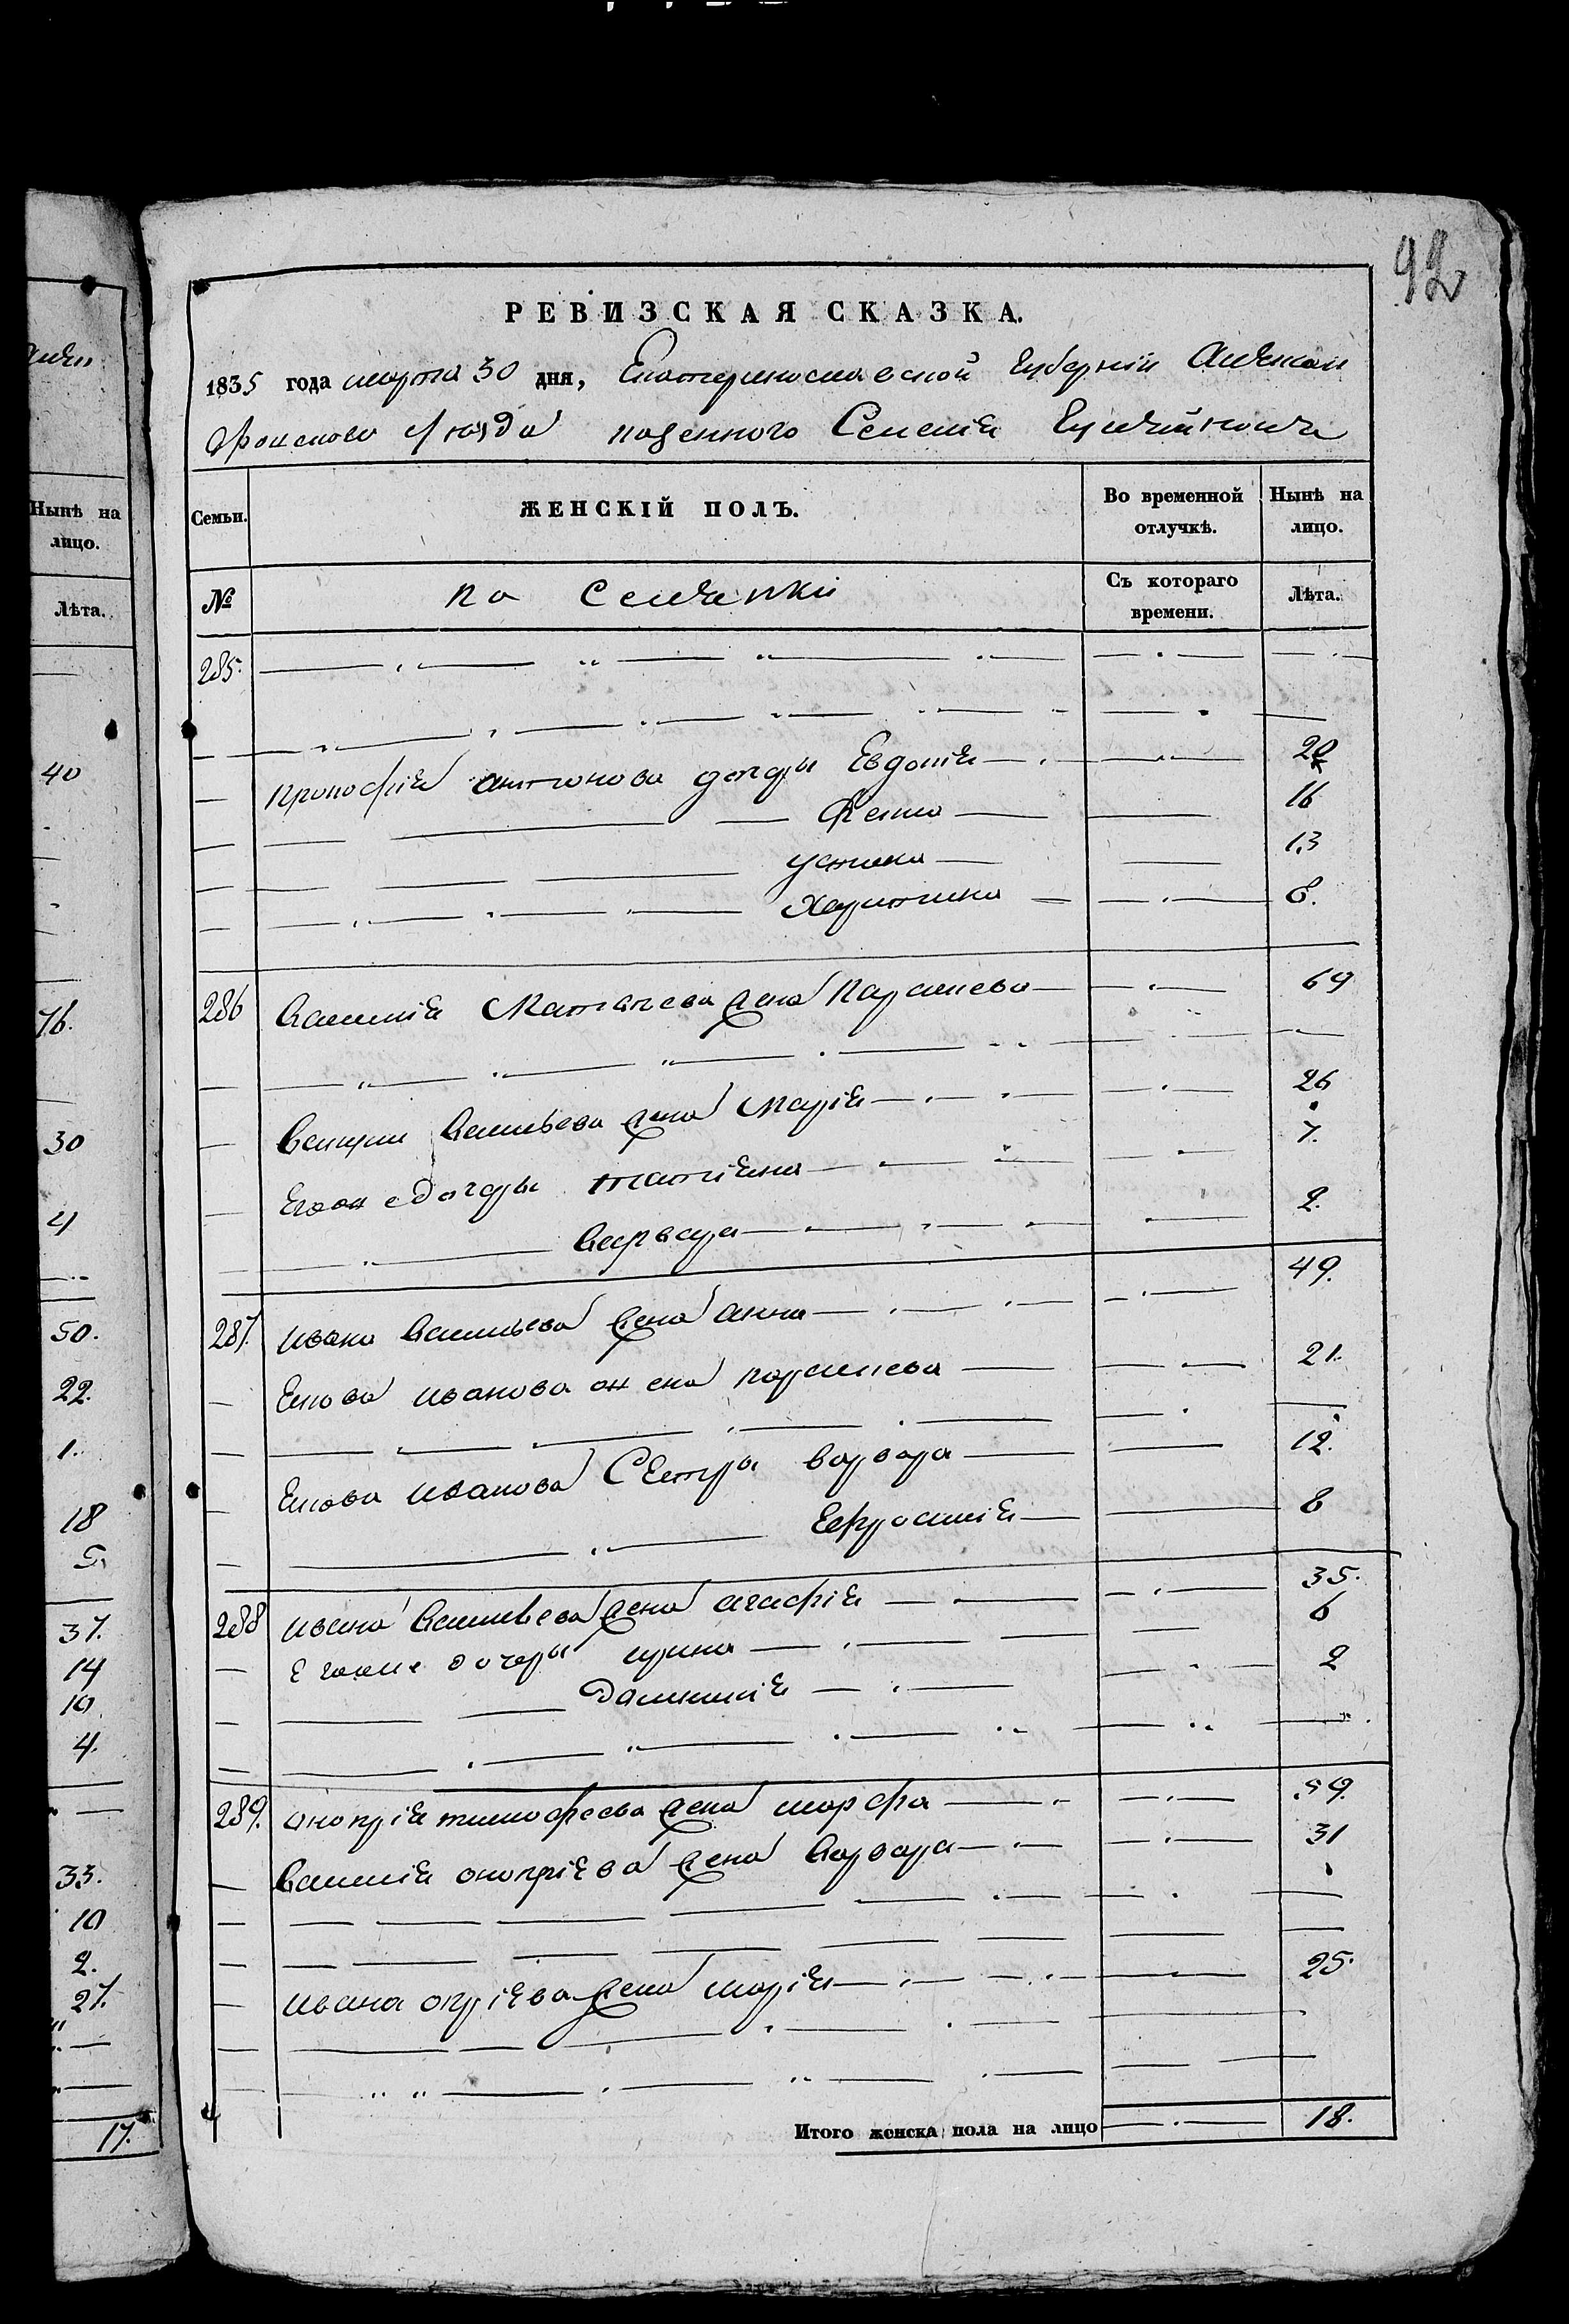 92
РЕВИЗСКАЯ СКАЗКА.
1835 года марта 30 дня, Екатеринославской губернiи Алексан
дровского уезда казенного Селенiя
Семьи. ЖЕНСКIЙ ПОЛЪ. Во временной отлучкѣ. Нынѣ на лицо.
№ Съ котораго времени. Лѣта.
285.
Прокофiя антонова дочери Евдокiя 20
Фекла 16
устина 13
Харитина 8.
286 Василiя Матвѣева жена Параскева 69
Василья Васильева жена Марiя 26
Егоже дочеры татiяна 7.
Варвара 2.
287. Ивана Васильева жена анна 49.
Якова иванова жена параскева 21.
Якова иванова Сестры варвара 12.
Ефросинiя 8
288 ивана Васильева жена агафiя 35.
Егоже дочеры ирина 6
Домникiя 2
289. онопрiя тимофеева жена марфа 59.
Василiя онопрiева жена Варвара 31
ивана опрiева жена марiя 25.
Итого женска пола на лицо 18.
Нынѣ на лицо.
Лѣта.
40
76.
30
4
50.
22.
1.
18
5.
37.
14
10.
4.
33.
10
2.
27.
17.